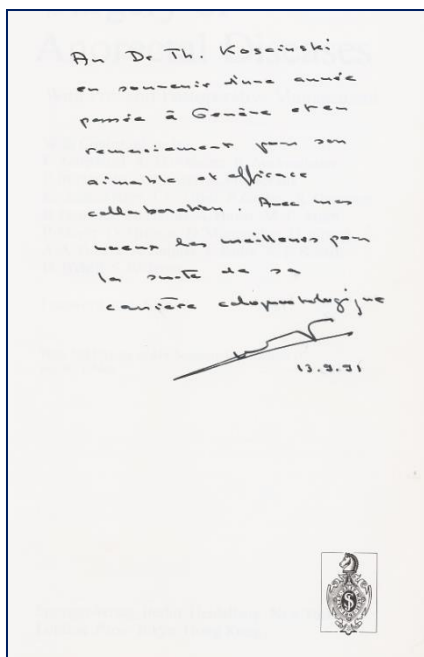 Anorectal Diseases
An Dr Th. Koscinski
en souvenir d'une année
passée à Genève et en
remerciement pour son
aimable et efficace
collaboration. Avec mes
voeux les meilleurs pour
la suite de sa
carrière coloproctologique
13.9.91